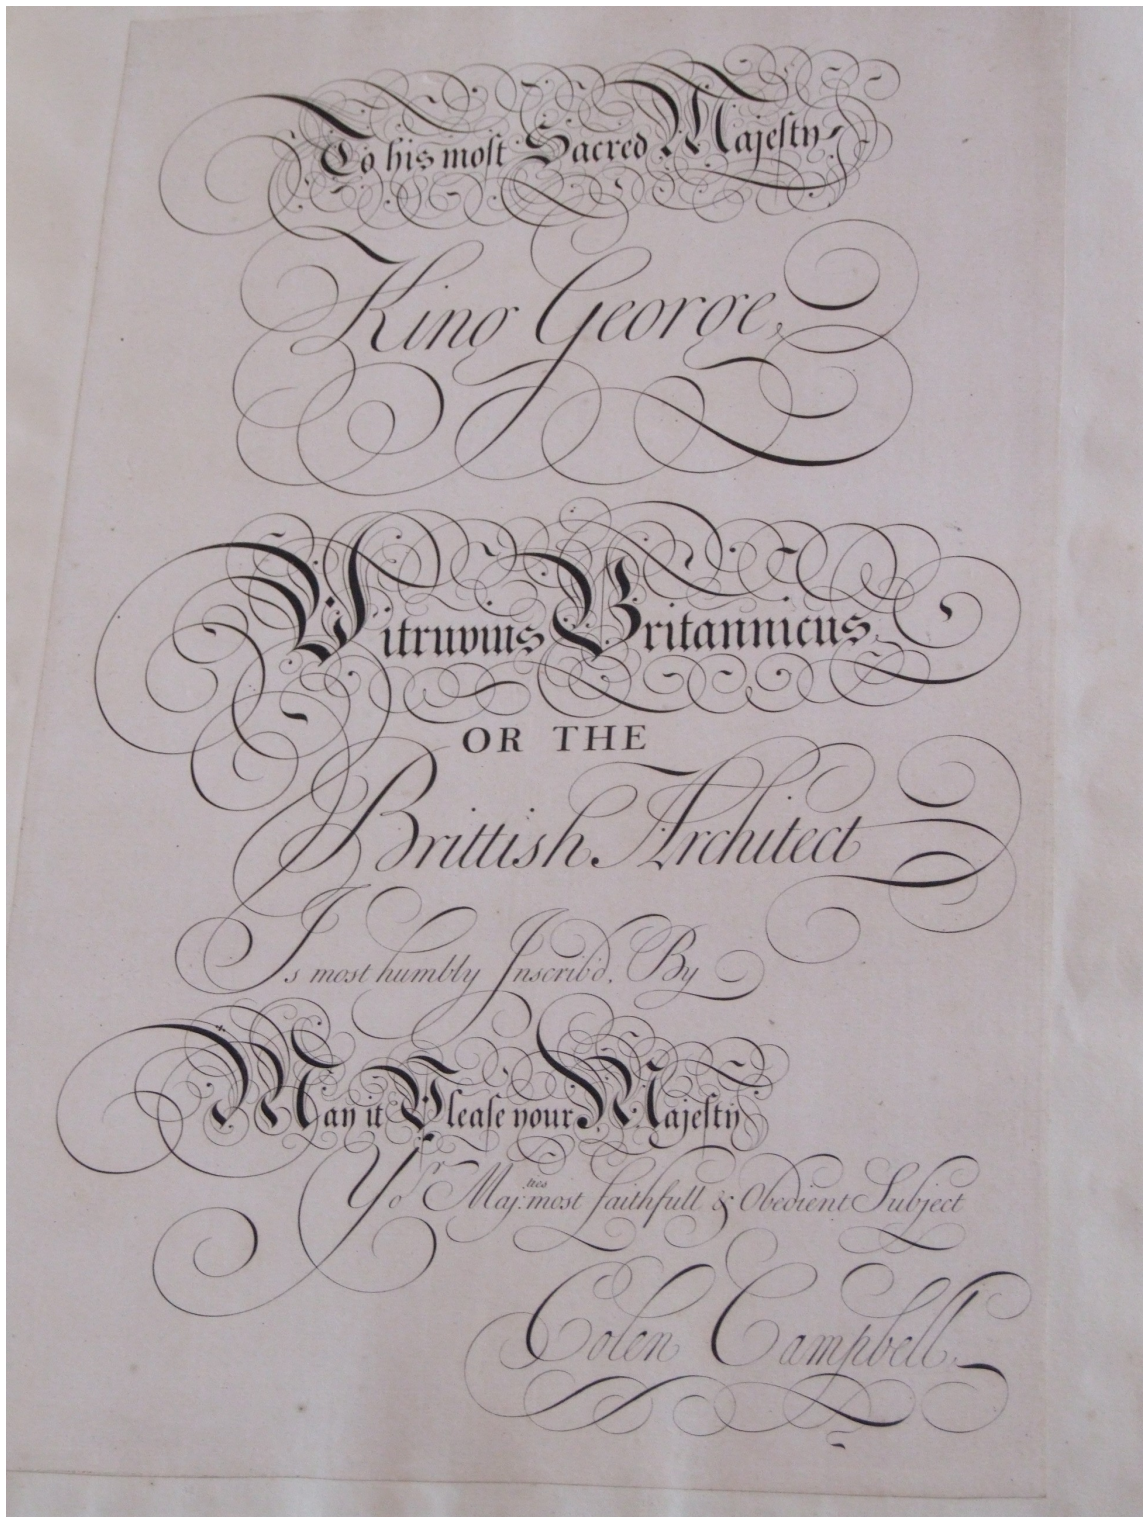 To his moſt Sacred Majeſty
King George,
Vitruvius Britannicus
OR THE
Brittish Architect
Is most humbly Inscrib'd, By
May it Pleaſe your Majeſty
Yor Maj:ties most faithfull & Obedient Subject
Colen Campbell.